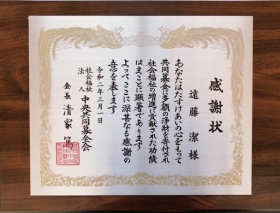 感謝状
遠藤 潔 様
あなたはたすけあいの心をもって
共同募金に多額の浄財を寄付され
社会福祉の増進に貢献された功績
はまことに顕著であります
よってここに深甚なる感謝の
意を表します
令和二年三月一日
社会福祉法人 中央共同募金会
会長 清家 篤